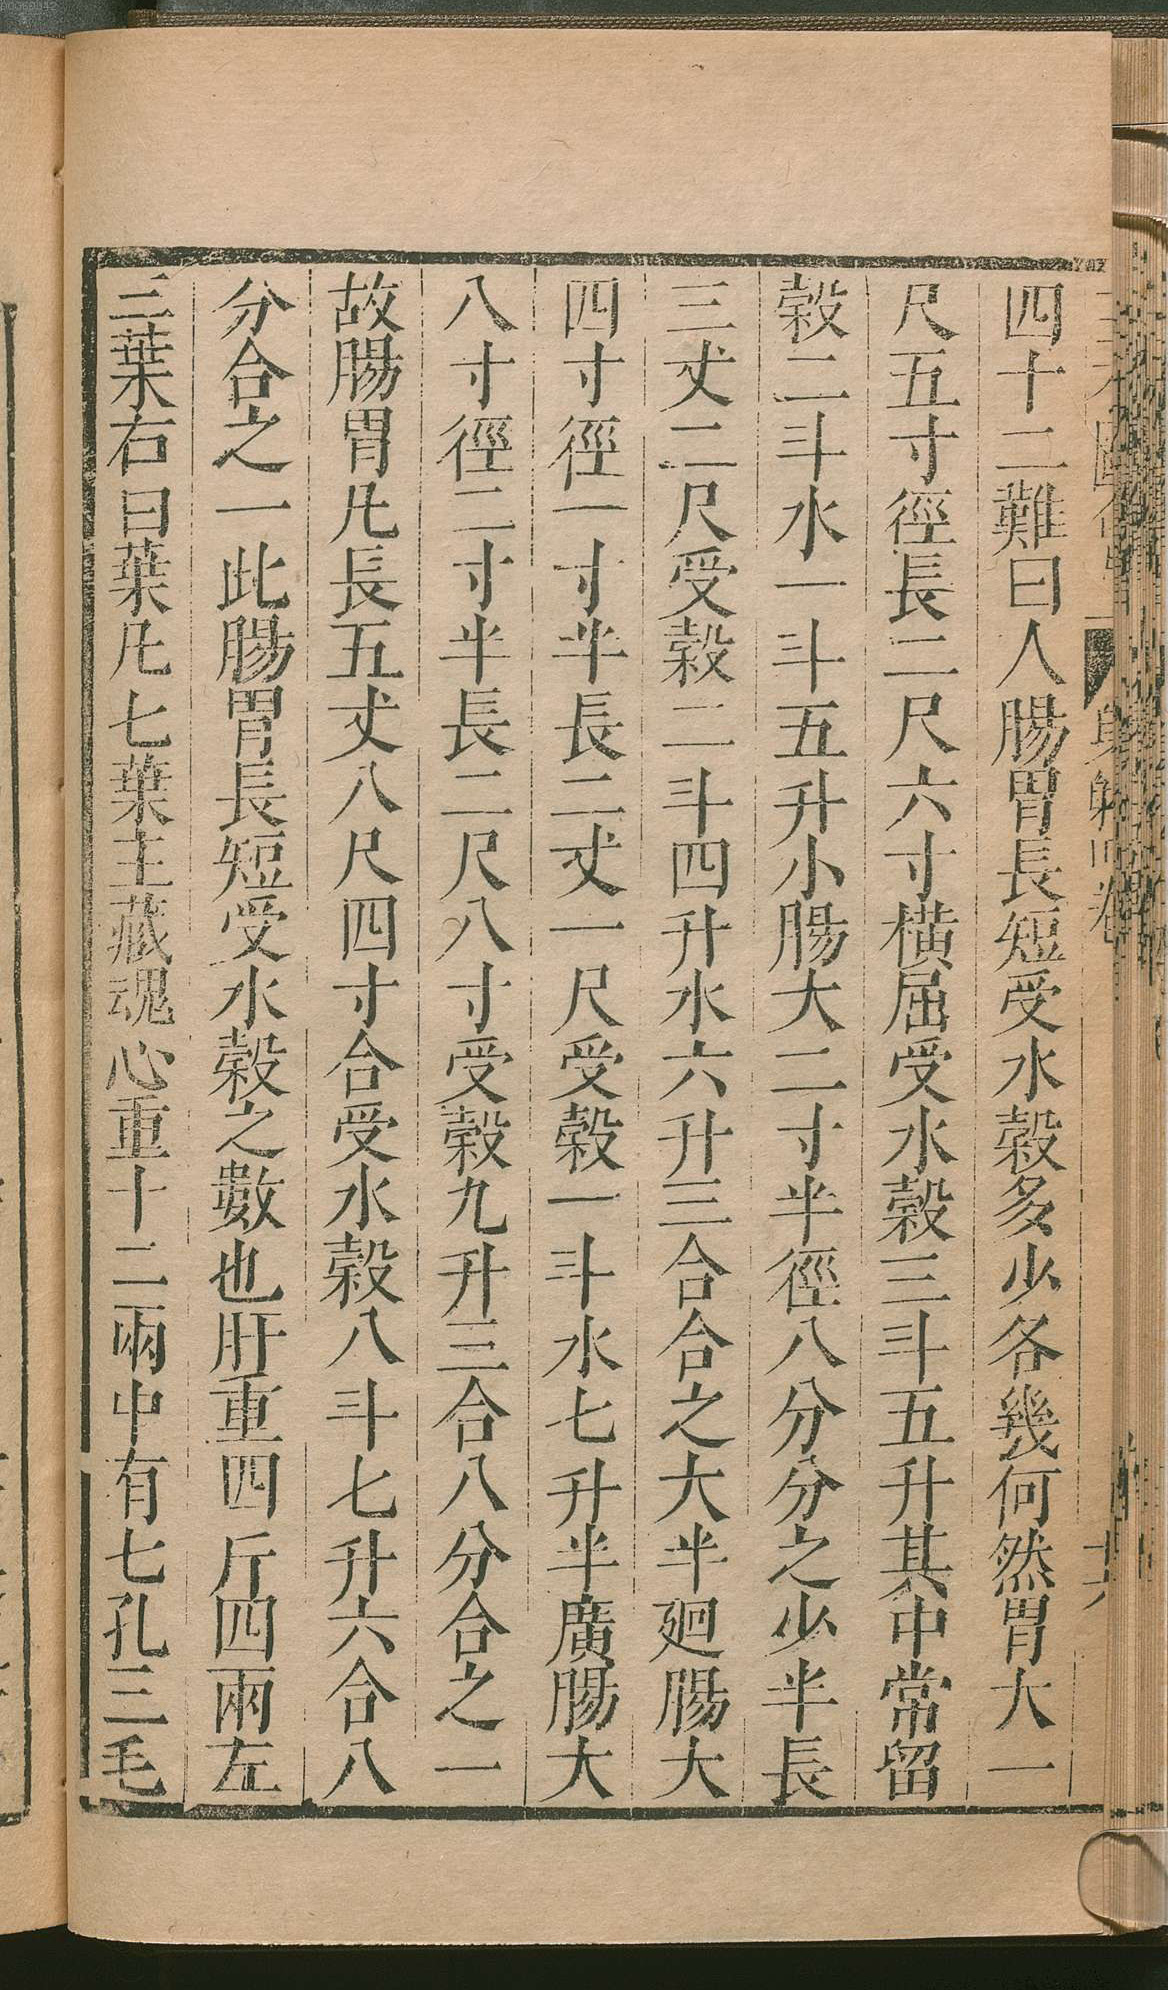 四十二難曰人腸胃長短受水穀多少各幾何然胃大一
尺五寸徑長二尺六寸橫屈受水穀三斗五升其中常留
穀二斗水一斗五升小腸大二寸半徑八分分之少半長
三丈二尺受穀二斗四升水六升三合合之大半廻腸大
四寸徑一寸半長二丈一尺受穀一斗水七升半廣腸大
八寸徑二寸半長二尺八寸受穀九升三合八分合之一
故腸胃凡長五丈八尺四寸合受水穀八斗七升六合八
分合之一此腸胃長短受水穀之數也肝重四斤四兩左
三葉右曰葉凡七葉主藏魂心重十二兩中有七孔三毛